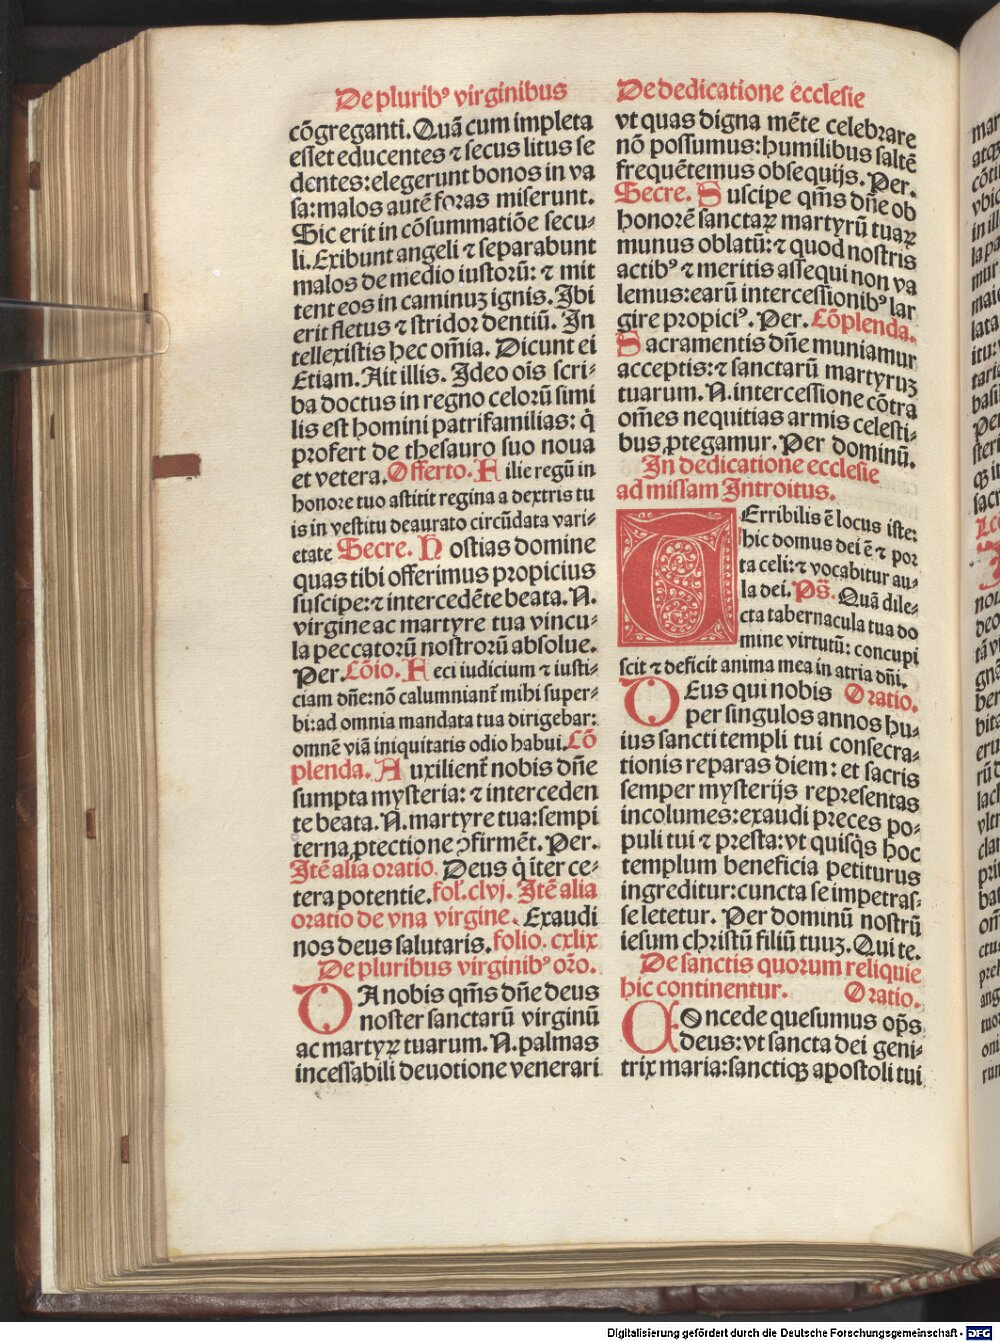 De pluribꝰ virginibus
cõgreganti. Quã cum impleta
esset educentes ⁊ secus litus se
dentes: elegerunt bonos in va
sa: malos autẽ foras miserunt.
Sic erit in cõsummatiõe secu⸗
li. Exibunt angeli ⁊ separabunt
malos de medio iustorũ: ⁊ mit
tent eos in caminuʒ ignis. Ibi
erit fletus ⁊ stridor dentiũ. In
tellexistis hec om̃ia. Dicunt ei
Etiam. Ait illis. Ideo ois scri⸗
ba doctus in regno celorũ simi
lis est homini patrifamilias: q̇
profert de thesauro suo noua
et vetera. Offerto. Filie regũ in
honore tuo astitit regina a dextris tu
is in vestitu deaurato circũdata vari⸗
etate Secre. Hostias domine
quas tibi offerimus propicius
suscipe: ⁊ intercedẽte beata. N.
virgine ac martyre tua vincu⸗
la peccatorũ nostrorũ absolue.
Per. Cõio. Feci iudicium ⁊ iusti⸗
ciam dñe: nõ calumnianť mihi super⸗
bi: ad omnia mandata tua dirigebar:
omnẽ viã iniquitatis odio habui. Cõ
plenda. Auxilienť nobis dñe
sumpta mysteria: ⁊ interceden
te beata. N. martyre tua: sempi
terna ꝓtectione ↄfirmẽt. Per.
Itẽ alia oratio. Deus q̇ iter ce⸗
tera potentie. fol. clvj. Itẽ alia
oratio de vna virgine. Exaudi
nos deus salutaris. folio. cxlix
De pluribus virginibꝰ orõ.
DA nobis qm̃s dñe deus
noster sanctarũ virginũ
ac martyꝝ tuarum. N. palmas
incessabili deuotione venerari
De dedicatione ecclesie
vt quas digna mẽte celebrare
nõ possumus: humilibus saltẽ
frequẽtemus obsequijs. Per.
Secre. Suscipe qm̃s dñe ob
honorẽ sanctaꝝ martyrũ tuaꝝ
munus oblatũ: ⁊ quod nostris
actibꝰ ⁊ meritis assequi non va
lemus: earũ intercessionibꝰ lar
gire propiciꝰ. Per. Cõplenda.
Sacramentis dñe muniamur
acceptis: ⁊ sanctarũ martyruʒ
tuarum. N. intercessione cõtra
om̃es nequitias armis celesti⸗
bus ꝓtegamur. Per dominũ.
In dedicatione ecclesie
ad missam Introitus.
TErribilis ẽ locus iste:
hic domus dei ẽ ⁊ por
ta celi: ⁊ vocabitur au⸗
la dei. Ps̃. Quã dile⸗
cta tabernacula tua do
mine virtutũ: concupi
scit ⁊ deficit anima mea in atria dñi.
DEus qui nobis Oratio.
per singulos annos hu⸗
ius sancti templi tui consecra⸗
tionis reparas diem: et sacris
semper mysterijs representas
incolumes: exaudi preces po⸗
puli tui ⁊ presta: vt quisq̇s hoc
templum beneficia petiturus
ingreditur: cuncta se impetras⸗
se letetur. Per dominũ nostrũ
iesum christũ filiũ tuuʒ. Qui te.
De sanctis quorum reliquie
hic continentur. Oratio.
COncede quesumus op̃s
deus: vt sancta dei geni⸗
trix maria: sanctiqꝫ apostoli tui
Digitalisierung gefördert durch die Deutsche Forschungsgemeinschaft - DFG